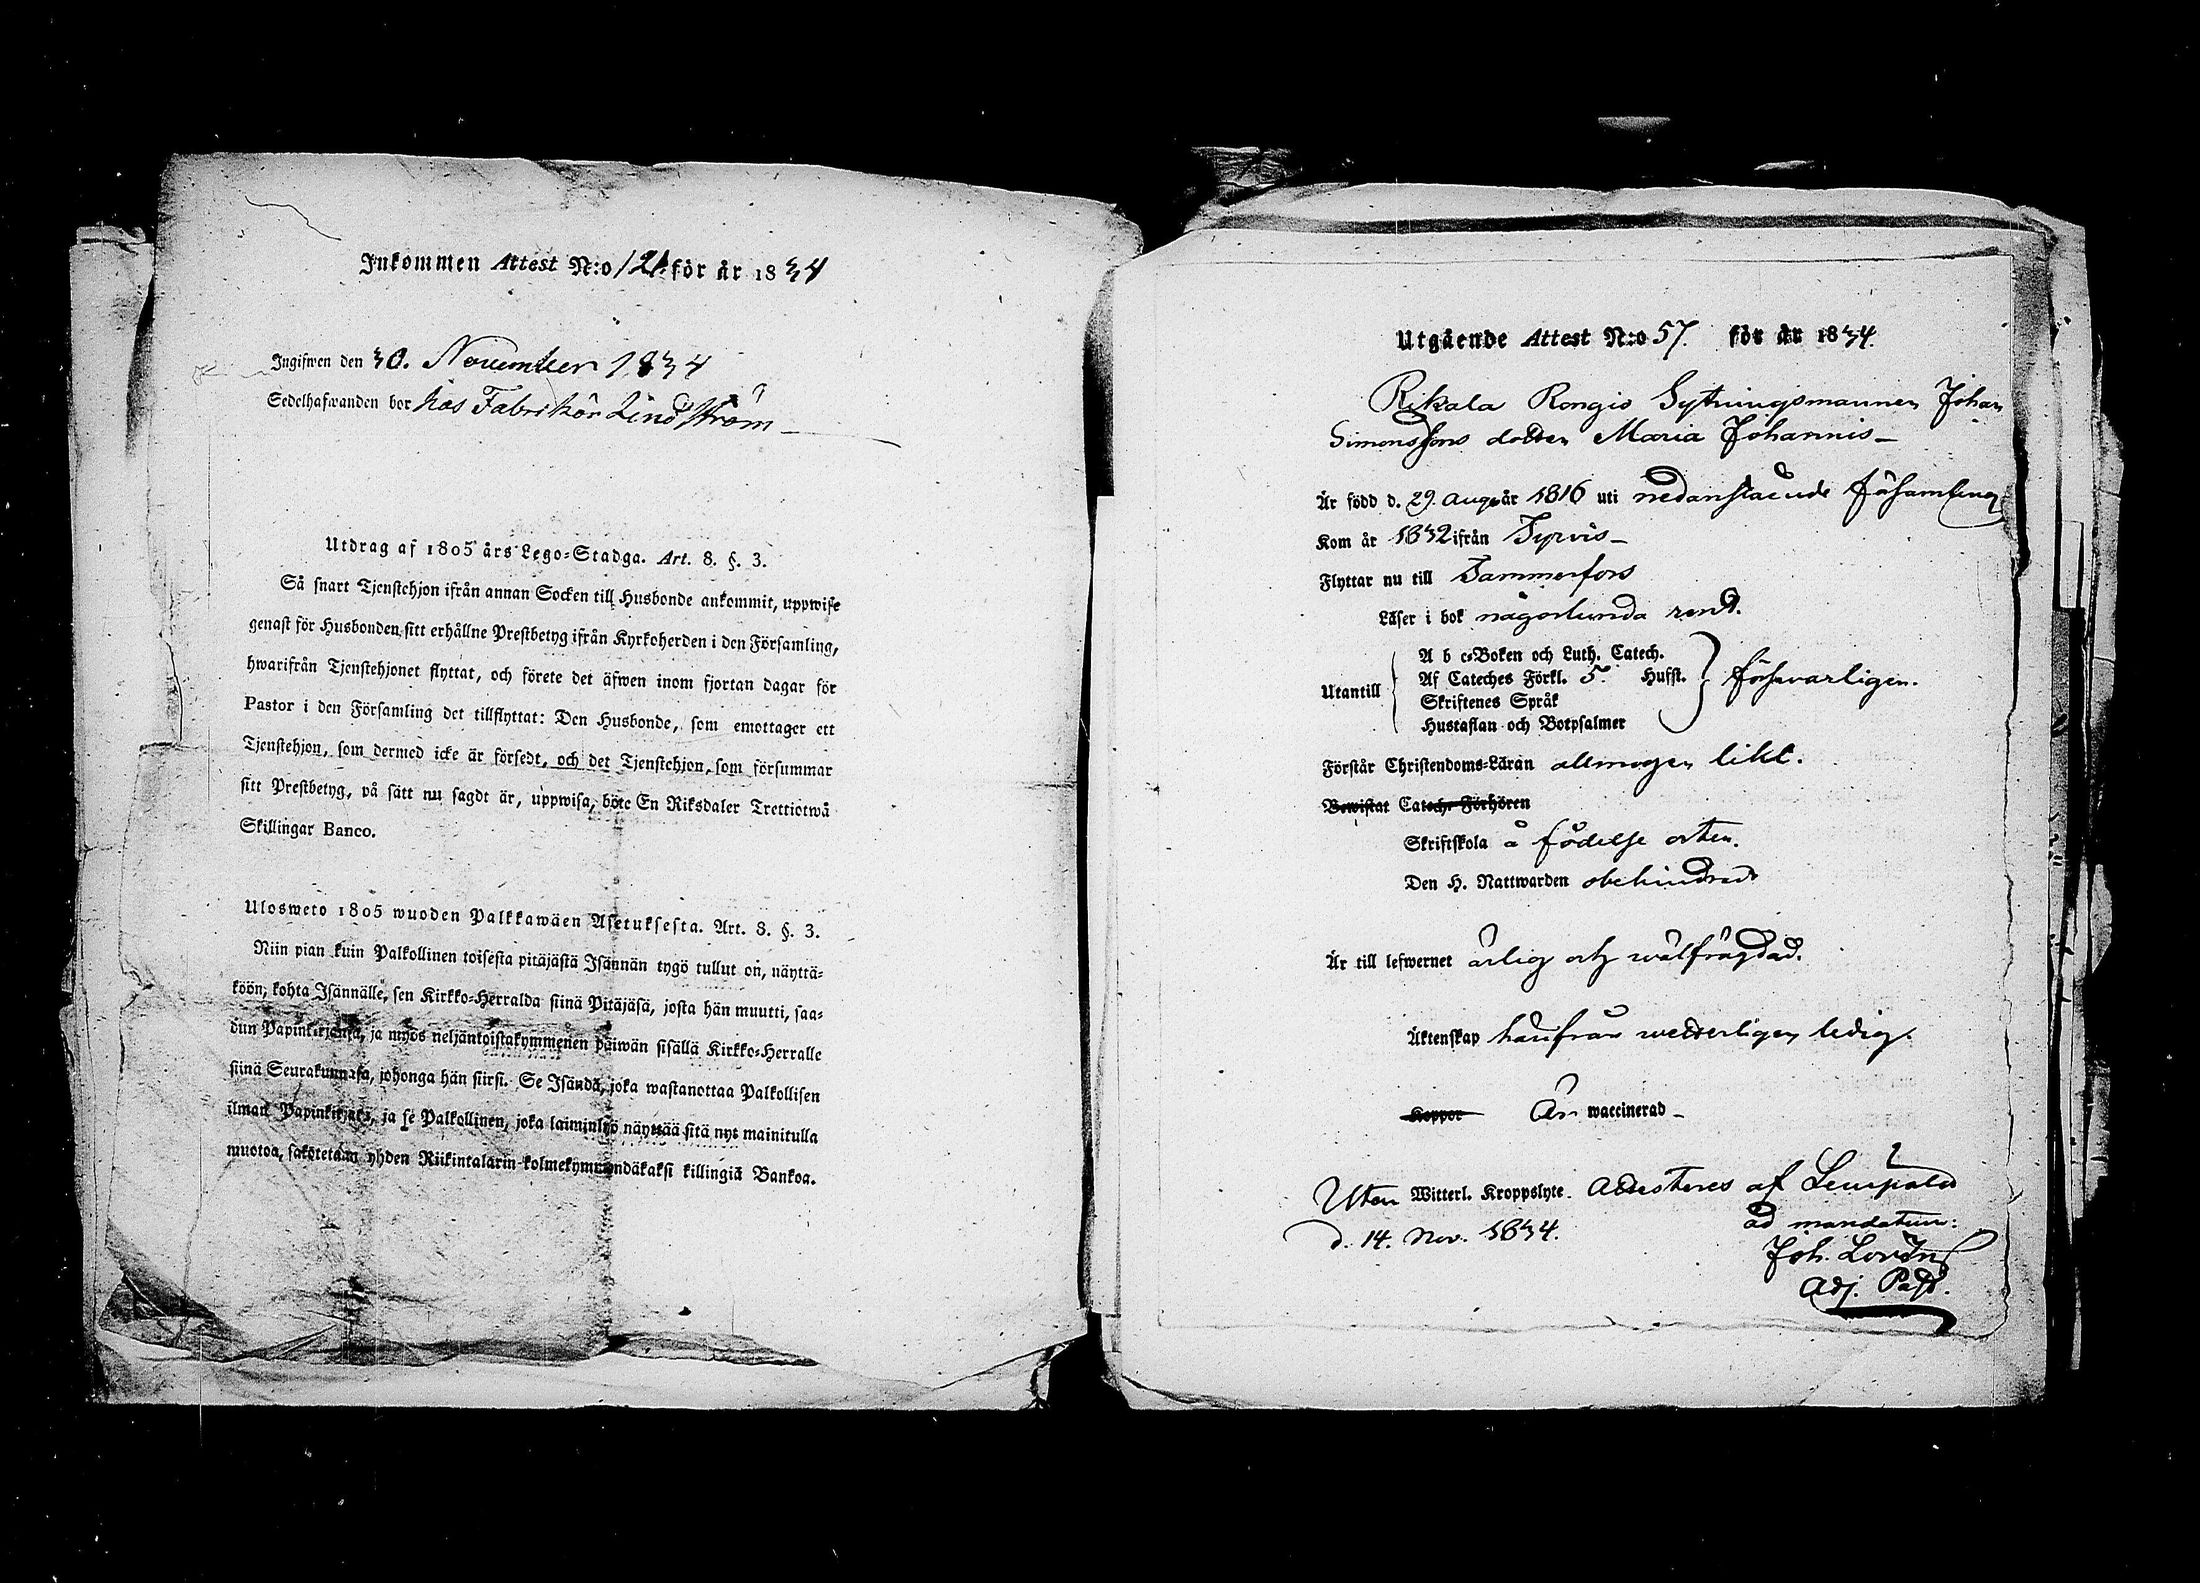 Inkommen Attest N:o 121. för år 1834
Ingifwen den 30. November 1834
Sedelhafwanden bor hos Fabrikör Lindström
Utdrag af 1805 års Lego-Stadga. Art. 8. §. 3.
Så snart Tjenstehjon ifrån annan Socken till Husbonde ankommit, uppwise
genast för Husbonden sitt erhållne Prestbetyg ifrån Kyrkoherden i den Församling,
hwarifrån Tjenstehjonet flyttat, och förete det äfwen inom fjortan dagar för
Pastor i den Församling det tillflyttat: Den Husbonde, som emottager ett
Tjenstehjon, som dermed icke är försedt, och det Tjenstehjon, som försummar
sitt Prestbetyg, på sätt nu sagdt är, uppwisa, böte En Riksdaler Trettiotwå
Skillingar Banco.
Ulosweto 1805 wuoden Palkkawäen Asetuksesta. Art. 8. §. 3.
Niin pian kuin Palkollinen toisesta pitäjästä Isännän tygö tullut on, näyttä-
köön, kohta Isännälle, sen Kirkko-Herralda siinä Pitäjäsä, josta hän muutti, saa-
dun Papinkirjansa, ja myös neljäntoistakymmenen päiwän sisällä Kirkko-Herralle
siinä Seurakunnasa, johonga hän siirsi. Se Isändä, joka wastanottaa Palkollisen
ilman Papinkirjata, ja se Palkollinen, joka laiminlyö näyttää sitä nyt mainitulla
muotoa, sakotetaan yhden Riikintalarin kolmekymmendäkaksi killingiä Bankoa.
Utgående Attest N:o 57. för år 1834.
Rikala Rongio Sytningsmannen Johan
Simonssons dotter Maria Johannis
Är född d. 29. Aug. år 1816 uti nedanstaende församling
Kom år 1832 ifrån Tyrvis
Flyttar nu till Tammerfors
Läser i bok någorlunda rent.
Utantill
A b c-Boken och Luth. Catech.
Af Cateches Förkl. 5. Hufst.
Skriftenes Språk
Hustaflan och Botpsalmer
försvarligen.
Förstår Christendoms-Läran allmogen likt.
Bewistat Catech. Förhören
Skriftskola å födelse orten.
Den H. Nattwarden obehindrad
Är till lefwernet ärlig och wälfrägdad.
Äktenskap härifrån wetterligen ledig.
Koppor Är waccinerad
Uten Witterl. Kroppslyte. Attesteres af Lempälä
d. 14. Nov. 1834.
ad mandatum:
Joh. Lovén
Adj. Past.